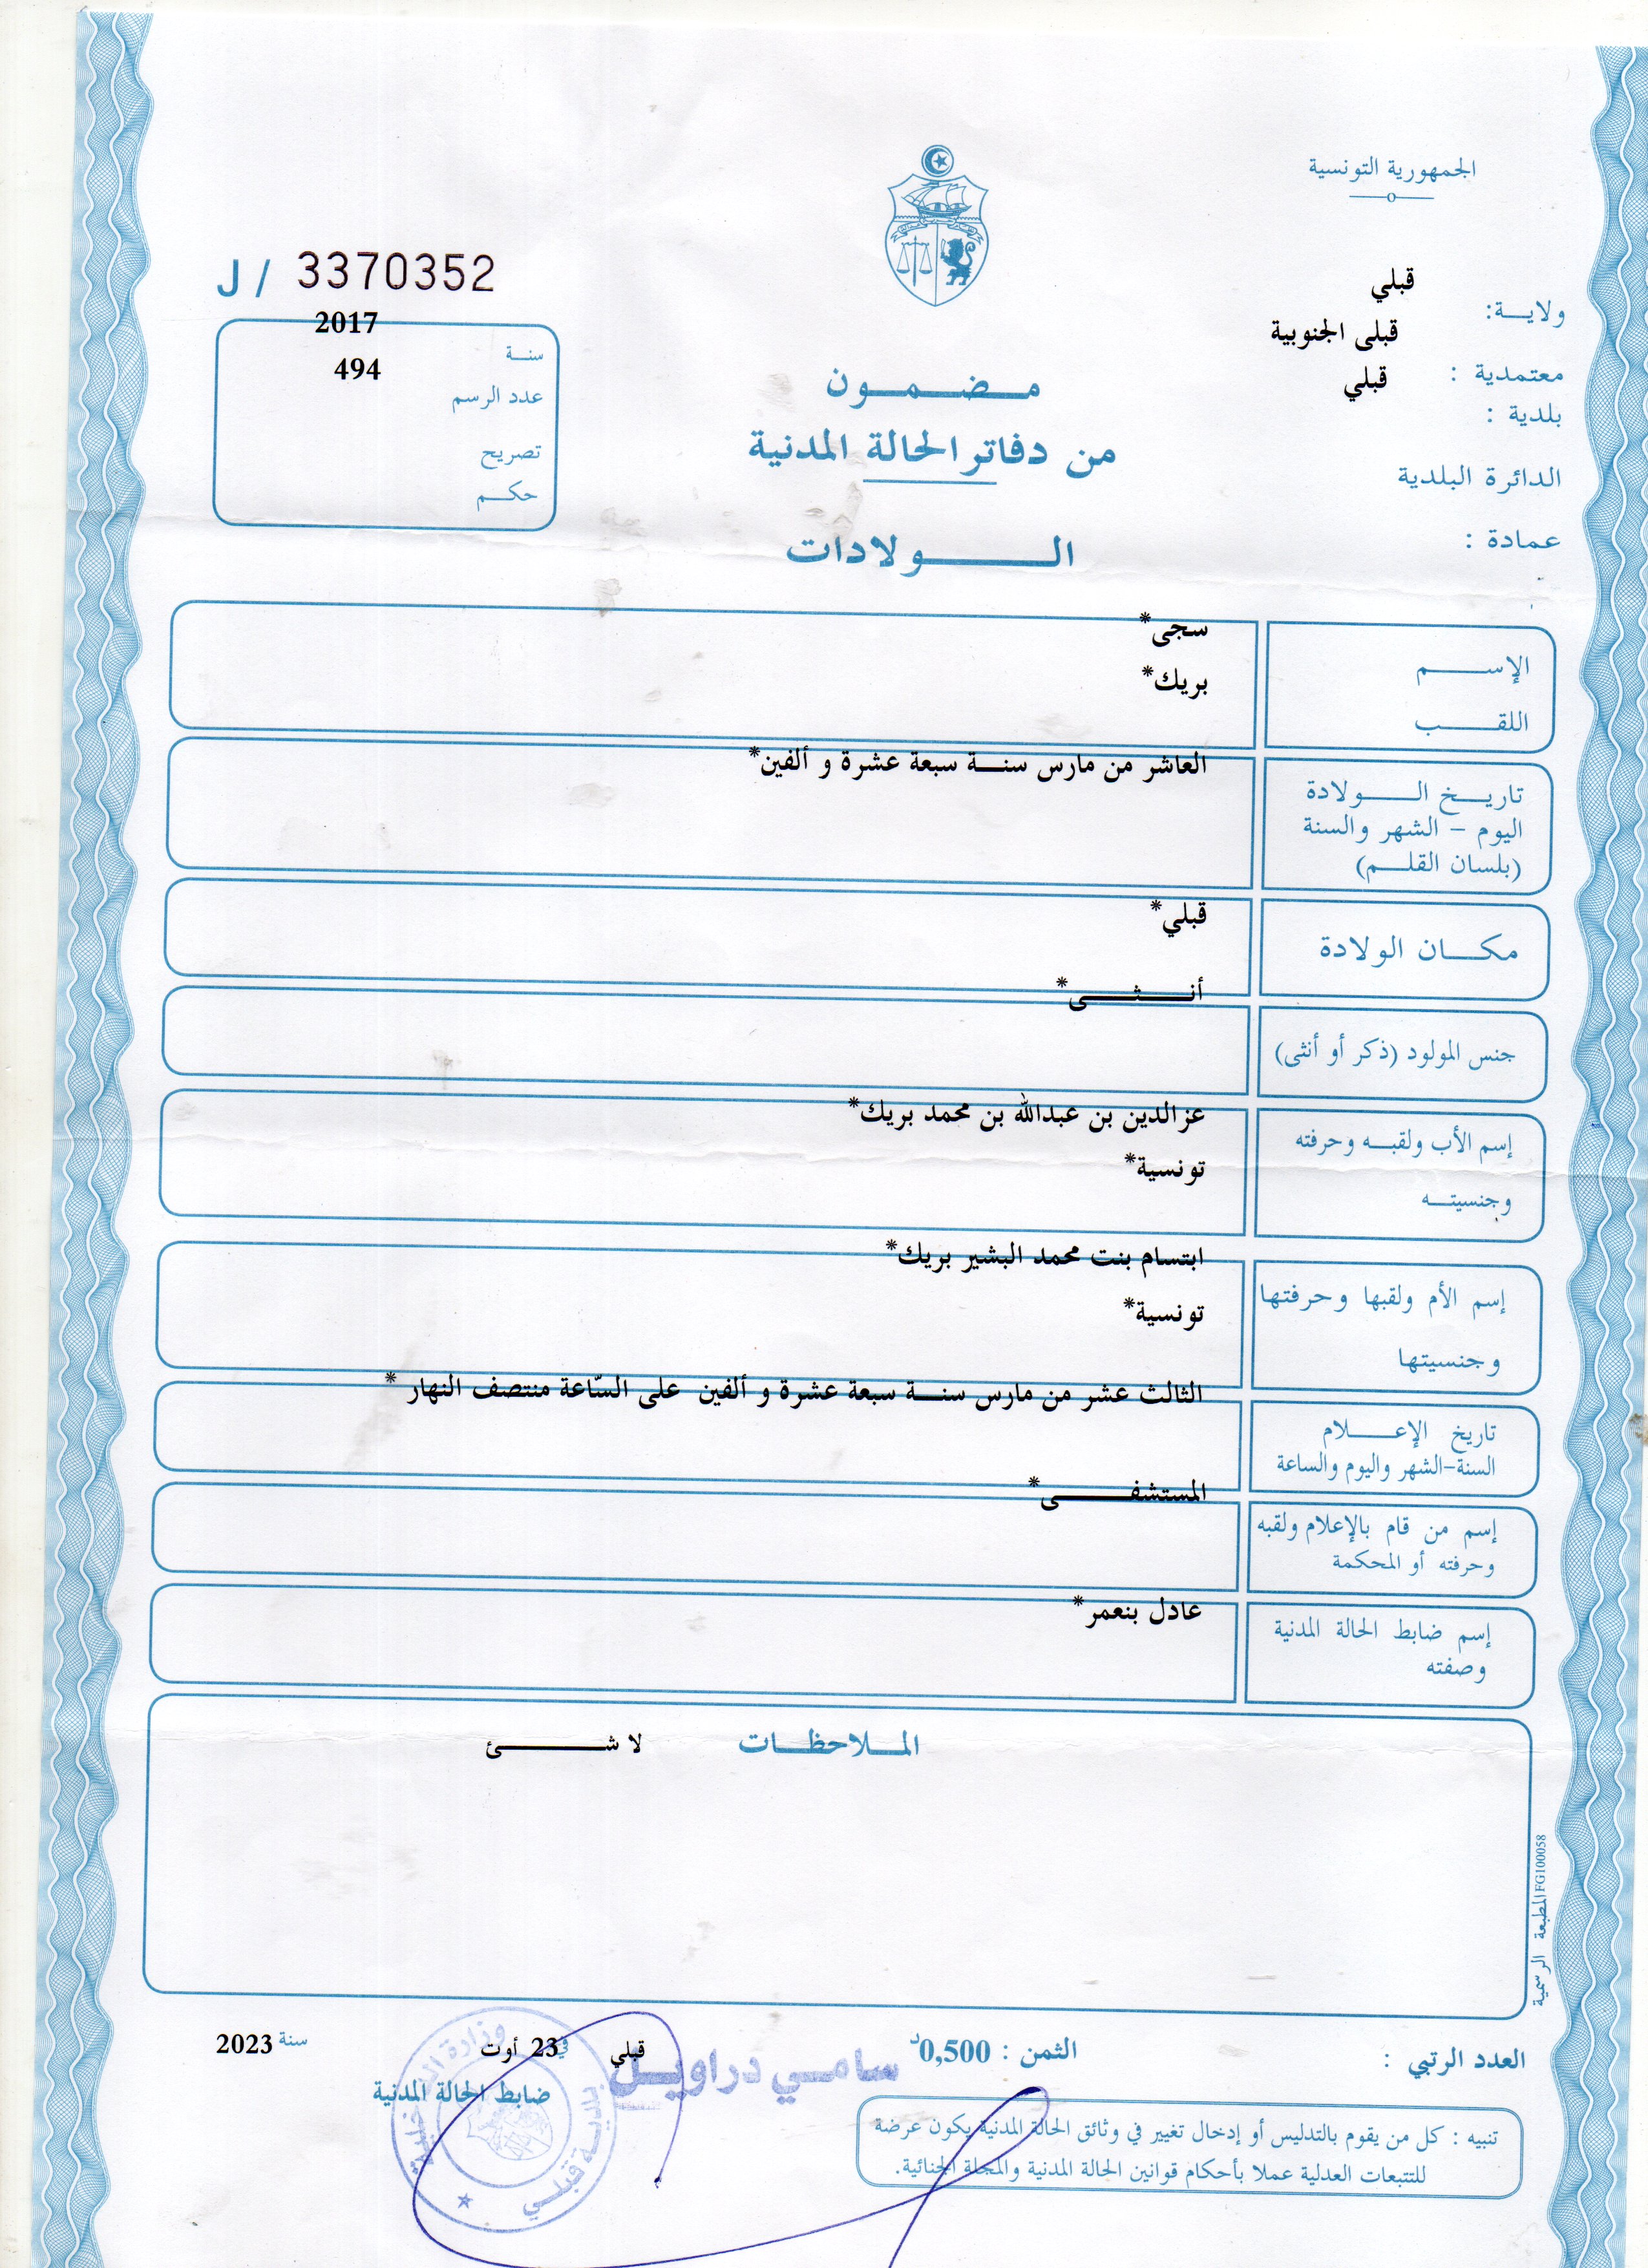 الجمهورية التونسية
ولاية: قبلي
معتمدية : قبلى الجنوبية
بلدية : قبلي
الدائرة البلدية
عمادة :
مضمون
من دفاتر الحالة المدنية
الولادات
J / 3370352
سنة 2017
عدد الرسم 494
تصريح
حكم
الإسم سجى*
اللقب بريك*
تاريخ الولادة العاشر من مارس سنة سبعة عشرة و ألفين*
اليوم - الشهر والسنة
(بلسان القلم)
مكان الولادة قبلي*
جنس المولود (ذكر أو أنثى) أنثى*
إسم الأب ولقبه وحرفته عزالدين بن عبدالله بن محمد بريك*
وجنسيته تونسية*
إسم الأم ولقبها وحرفتها ابتسام بنت محمد البشير بريك*
وجنسيتها تونسية*
تاريخ الإعلام الثالث عشر من مارس سنة سبعة عشرة و ألفين على السّاعة منتصف النهار *
السنة-الشهر واليوم والساعة
إسم من قام بالإعلام ولقبه المستشفى*
وحرفته أو المحكمة
إسم ضابط الحالة المدنية عادل بنعمر*
وصفته
الملاحظات لا شئ
المطبعة الرسمية FG100058
العدد الرتبي :
الثمن : 0,500د
قبلي في 23 أوت سنة 2023
سامي دراويل
ضابط الحالة المدنية
وزارة الداخلية
بلدية قبلي
تنبيه : كل من يقوم بالتدليس أو إدخال تغيير في وثائق الحالة المدنية يكون عرضة
للتتبعات العدلية عملا بأحكام قوانين الحالة المدنية والمجلة الجنائية.